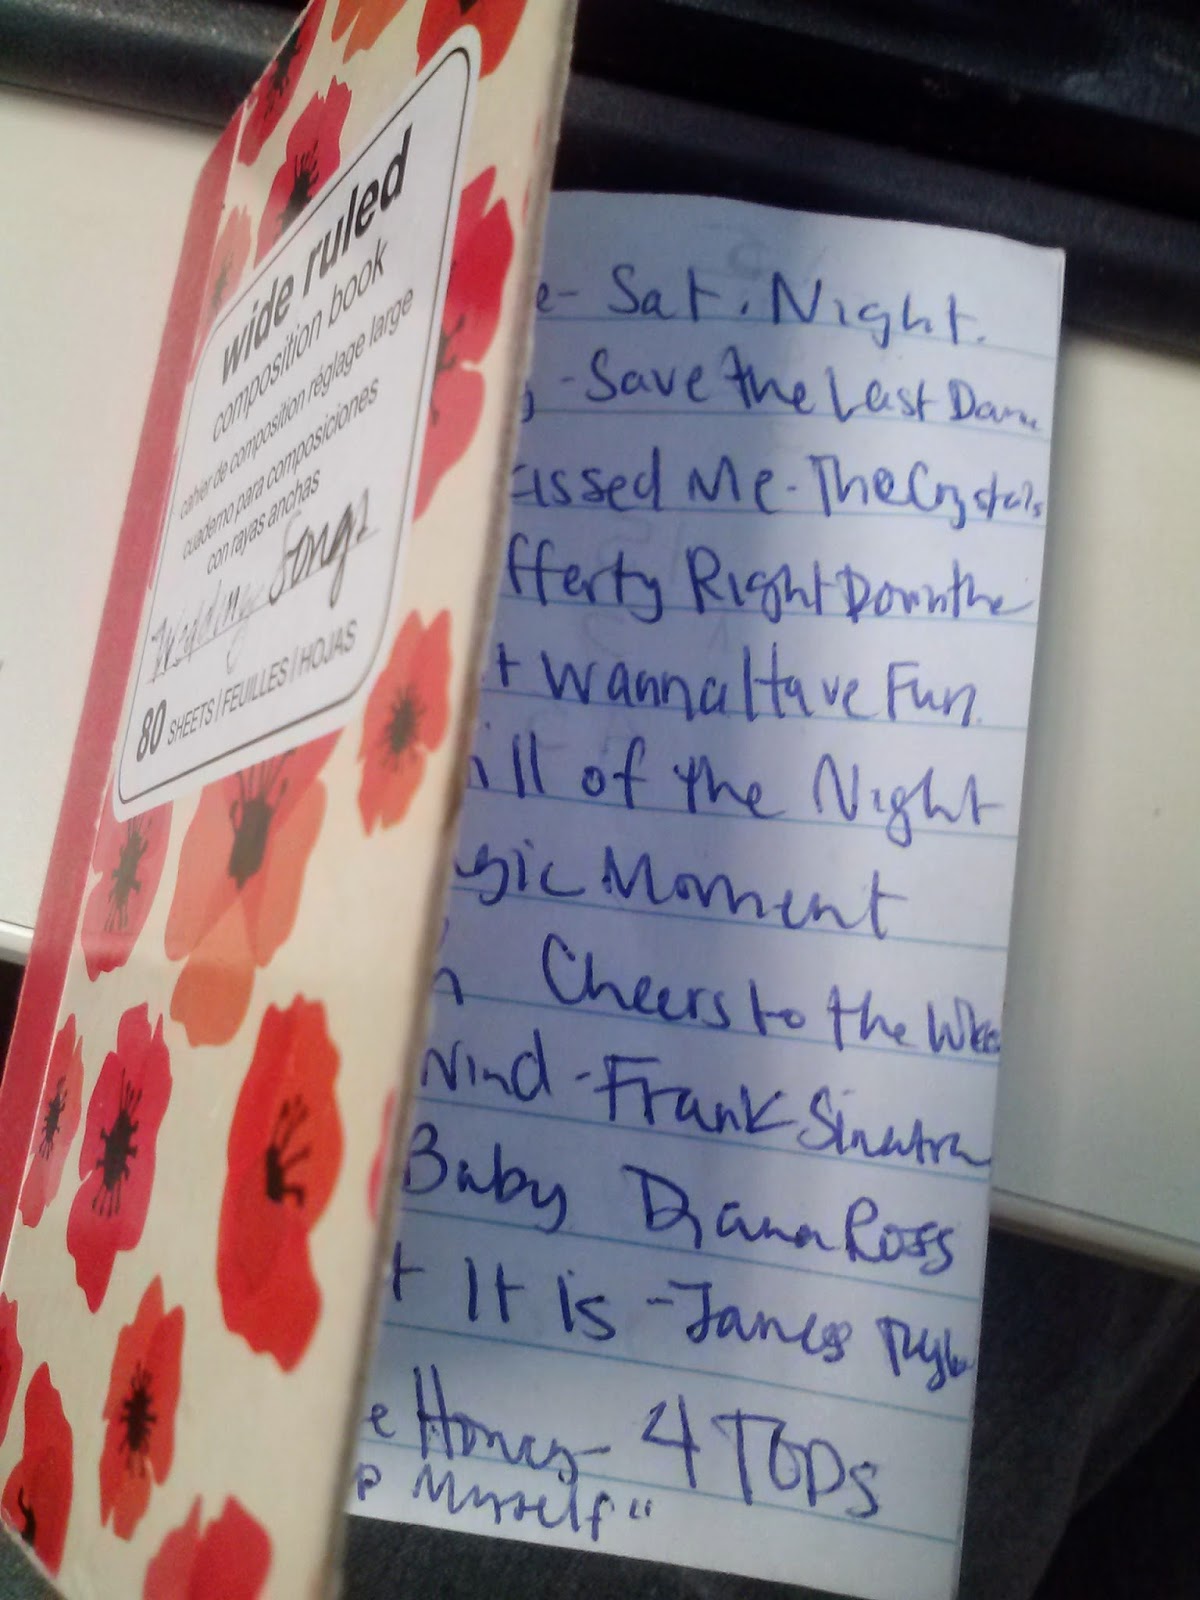 wide ruled
composition book
cahier de composition réglage large
cuaderno para composiciones
con rayas anchas
Wedding Songs
80 SHEETS / FEUILLES / HOJAS
e- Sat. Night.
-Save the Last Dance
issed Me-The Crystals
fferty Right Down the
t Wanna Have Fun.
ill of the Night
gic Moment
n Cheers to the
Wind-Frank Sinatra
Baby Diana Ross
t It Is-James Taylor
e Honey-4 TOPS
p Myself"